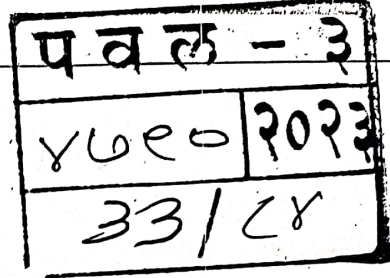 पवल - ३
४७९० २०२३
३३/८४